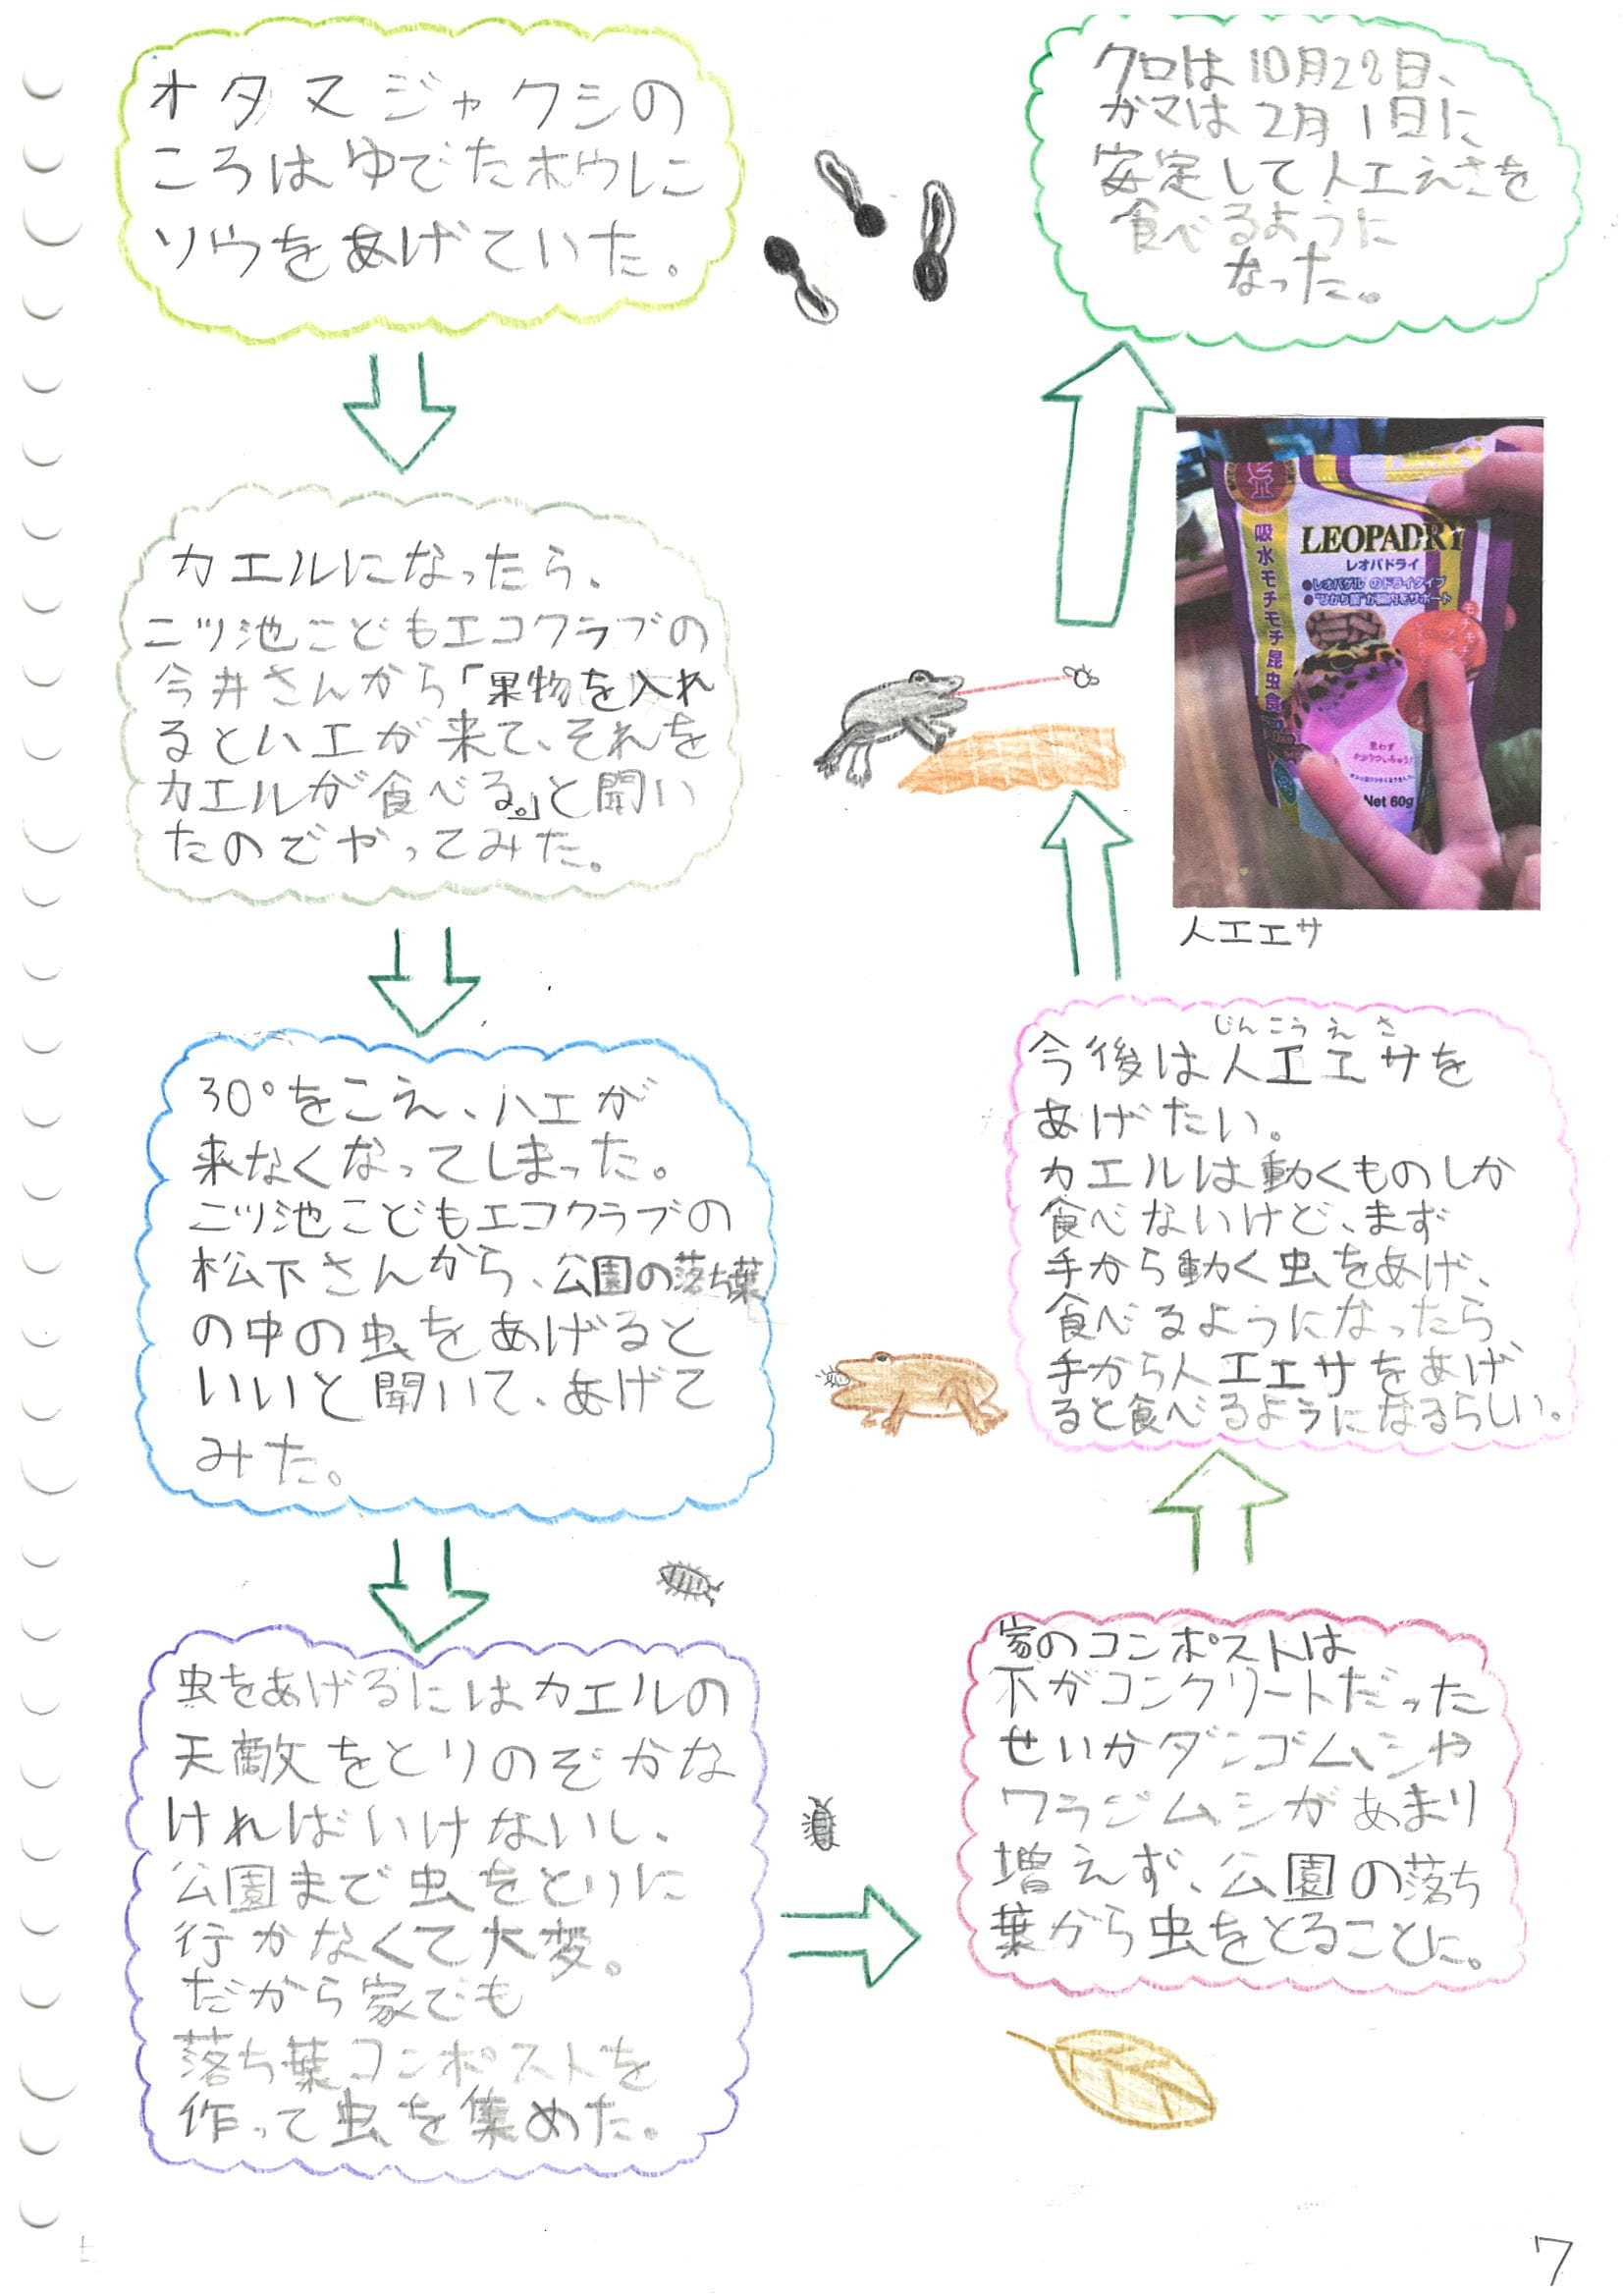 オタマジャクシの
ころはゆでたホウレン
ソウをあげていた。
カエルになったら、
二ツ池こどもエコクラブの
今井さんから「果物を入れ
るとハエが来て、それを
カエルが食べる。」と聞い
たのでやってみた。
30°をこえ、ハエが
来なくなってしまった。
二ツ池こどもエコクラブの
松下さんから、公園の落ち葉
の中の虫をあげると
いいと聞いて、あげて
みた。
虫をあげるにはカエルの
天敵をとりのぞかな
ければいけないし、
公園まで虫をとりに
行かなくて大変。
だから家でも
落ち葉コンポストを
作って虫を集めた。
家のコンポストは
下がコンクリートだった
せいかダンゴムシや
ワラジムシがあまり
増えず、公園の落ち
葉から虫をとることに。
じんこうえさ
今後は人工エサを
あげたい。
カエルは動くものしか
食べないけど、まず
手から動く虫をあげ、
食べるようになったら
手から人工エサをあげ
ると食べるようになるらしい。
LEOPADRY
レオパドライ
●レオパゲルのドライタイプ
●"ひかり菌"が腸内もサポート
吸水モチモチ昆虫食
思わず
かぶりついちゃう!
Net 60g
人工エサ
クロは10月28日、
ガマは2月1日に
安定して人工えさを
食べるように
なった。
7